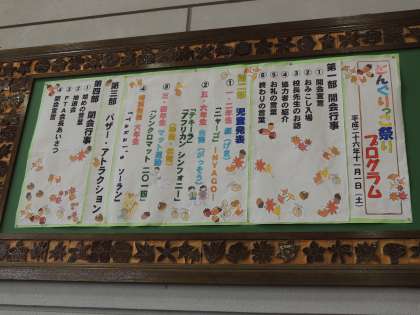 どんぐりっ子祭り
プログラム
平成二十六年十一月一日(土)
第一部 開会行事
① 開会宣言
② おみこし入場
③ 校長先生のお話
④ 協力者の紹介
⑤ お礼の言葉
⑥ 終わりの言葉
第二部 児童発表
① 一・二年生 劇(げき)
「ニャーゴ」-NYAGO-
② 五・六年生 合奏(がっそう)
「アフリカン シンフォニー」
「テキーラ」
③ 三・四年生 マット運動
④ 六年生
「シンクロマット 二〇一四」
ソーラン
第三部 バザー・アトラクション
第四部 閉会行事
① 始めの言葉
② 地道会
③ PTA会長あいさつ
④ 閉会宣言